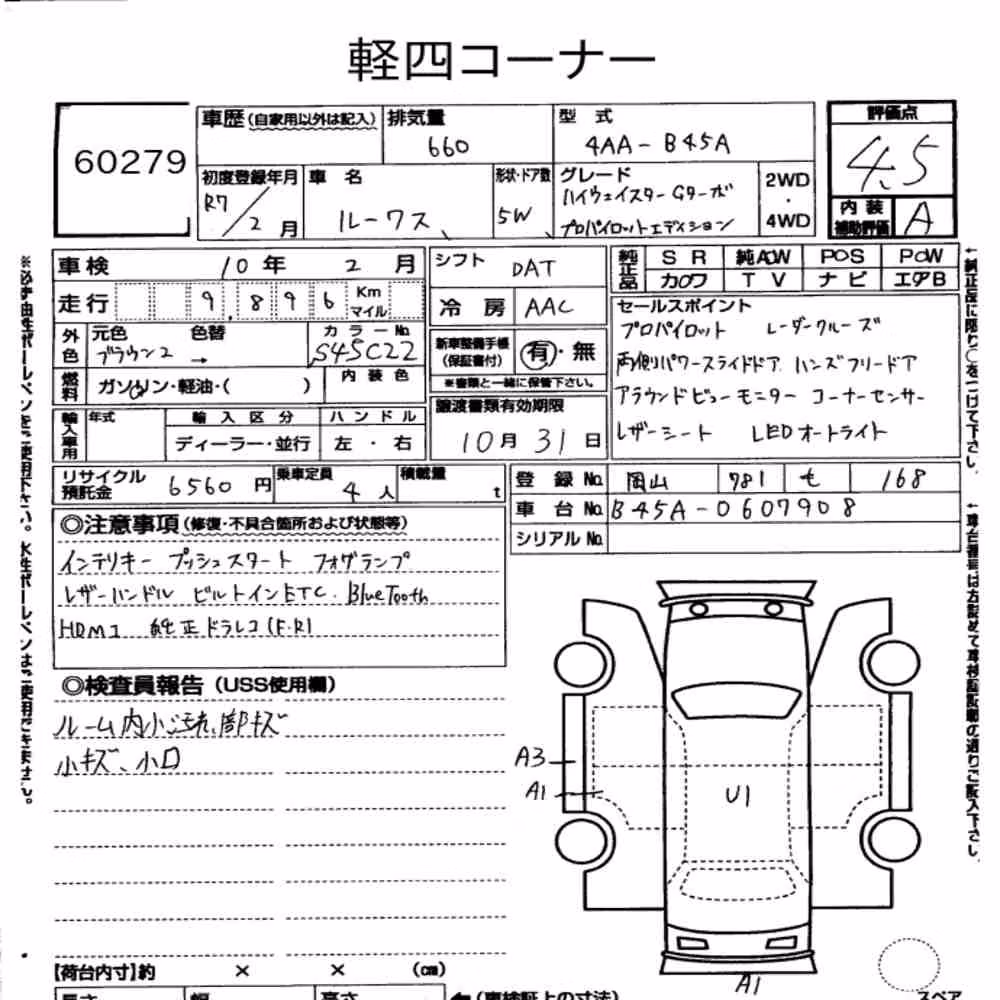 軽四コーナー
60279
車歴(自家用以外は記入)
排気量
660
型 式
4AA-B45A
評価点
4.5
内装補助評価
A
初度登録年月
R7/2月
車 名
ルークス
形状・ドア数
5W
グレード
ハイウェイスターGターボ
プロパイロットエディション
2WD
・
4WD
車検
10年 2月
走行
9,896 Km
マイル
外色
元色 色替
ブラウン2 →
カラーNo.
S45C22
燃料
ガソリン・軽油・( )
内装色
輸入車用
年式
輸入区分
ディーラー・並行
ハンドル
左・右
シフト
DAT
冷房
AAC
新車整備手帳
(保証書付)
有・無
※書類と一緒に保管下さい。
譲渡書類有効期限
10月31日
純正品
SR 純AW PS PW
カワ TV ナビ エアB
セールスポイント
プロパイロット レーダークルーズ
両側パワースライドドア ハンズフリードア
アラウンドビューモニター コーナーセンサー
レザーシート LEDオートライト
リサイクル預託金
6560円
乗車定員
4人
積載量
t
登録No.
岡山 781 も 168
車台No.
B45A-0607908
シリアルNo.
◎注意事項(修復・不具合箇所および状態等)
インテリキー プッシュスタート フォグランプ
レザーハンドル ビルトインETC. BlueTooth
HDMI 純正ドラレコ(F.R)
◎検査員報告(USS使用欄)
ルーム内小汚れ、部キズ
小キズ、小凹
A3
A1
U1
A1
【荷台内寸】約 × × (cm)
長さ 幅 高さ
←(車検証上の寸法)
スペア
※必ず油性ボールペンをご使用下さい。水性ボールペンはご使用できません。
←純正品に限り○をつけて下さい。
←車台番号は左詰めで車検証記載の通りご記入下さい。